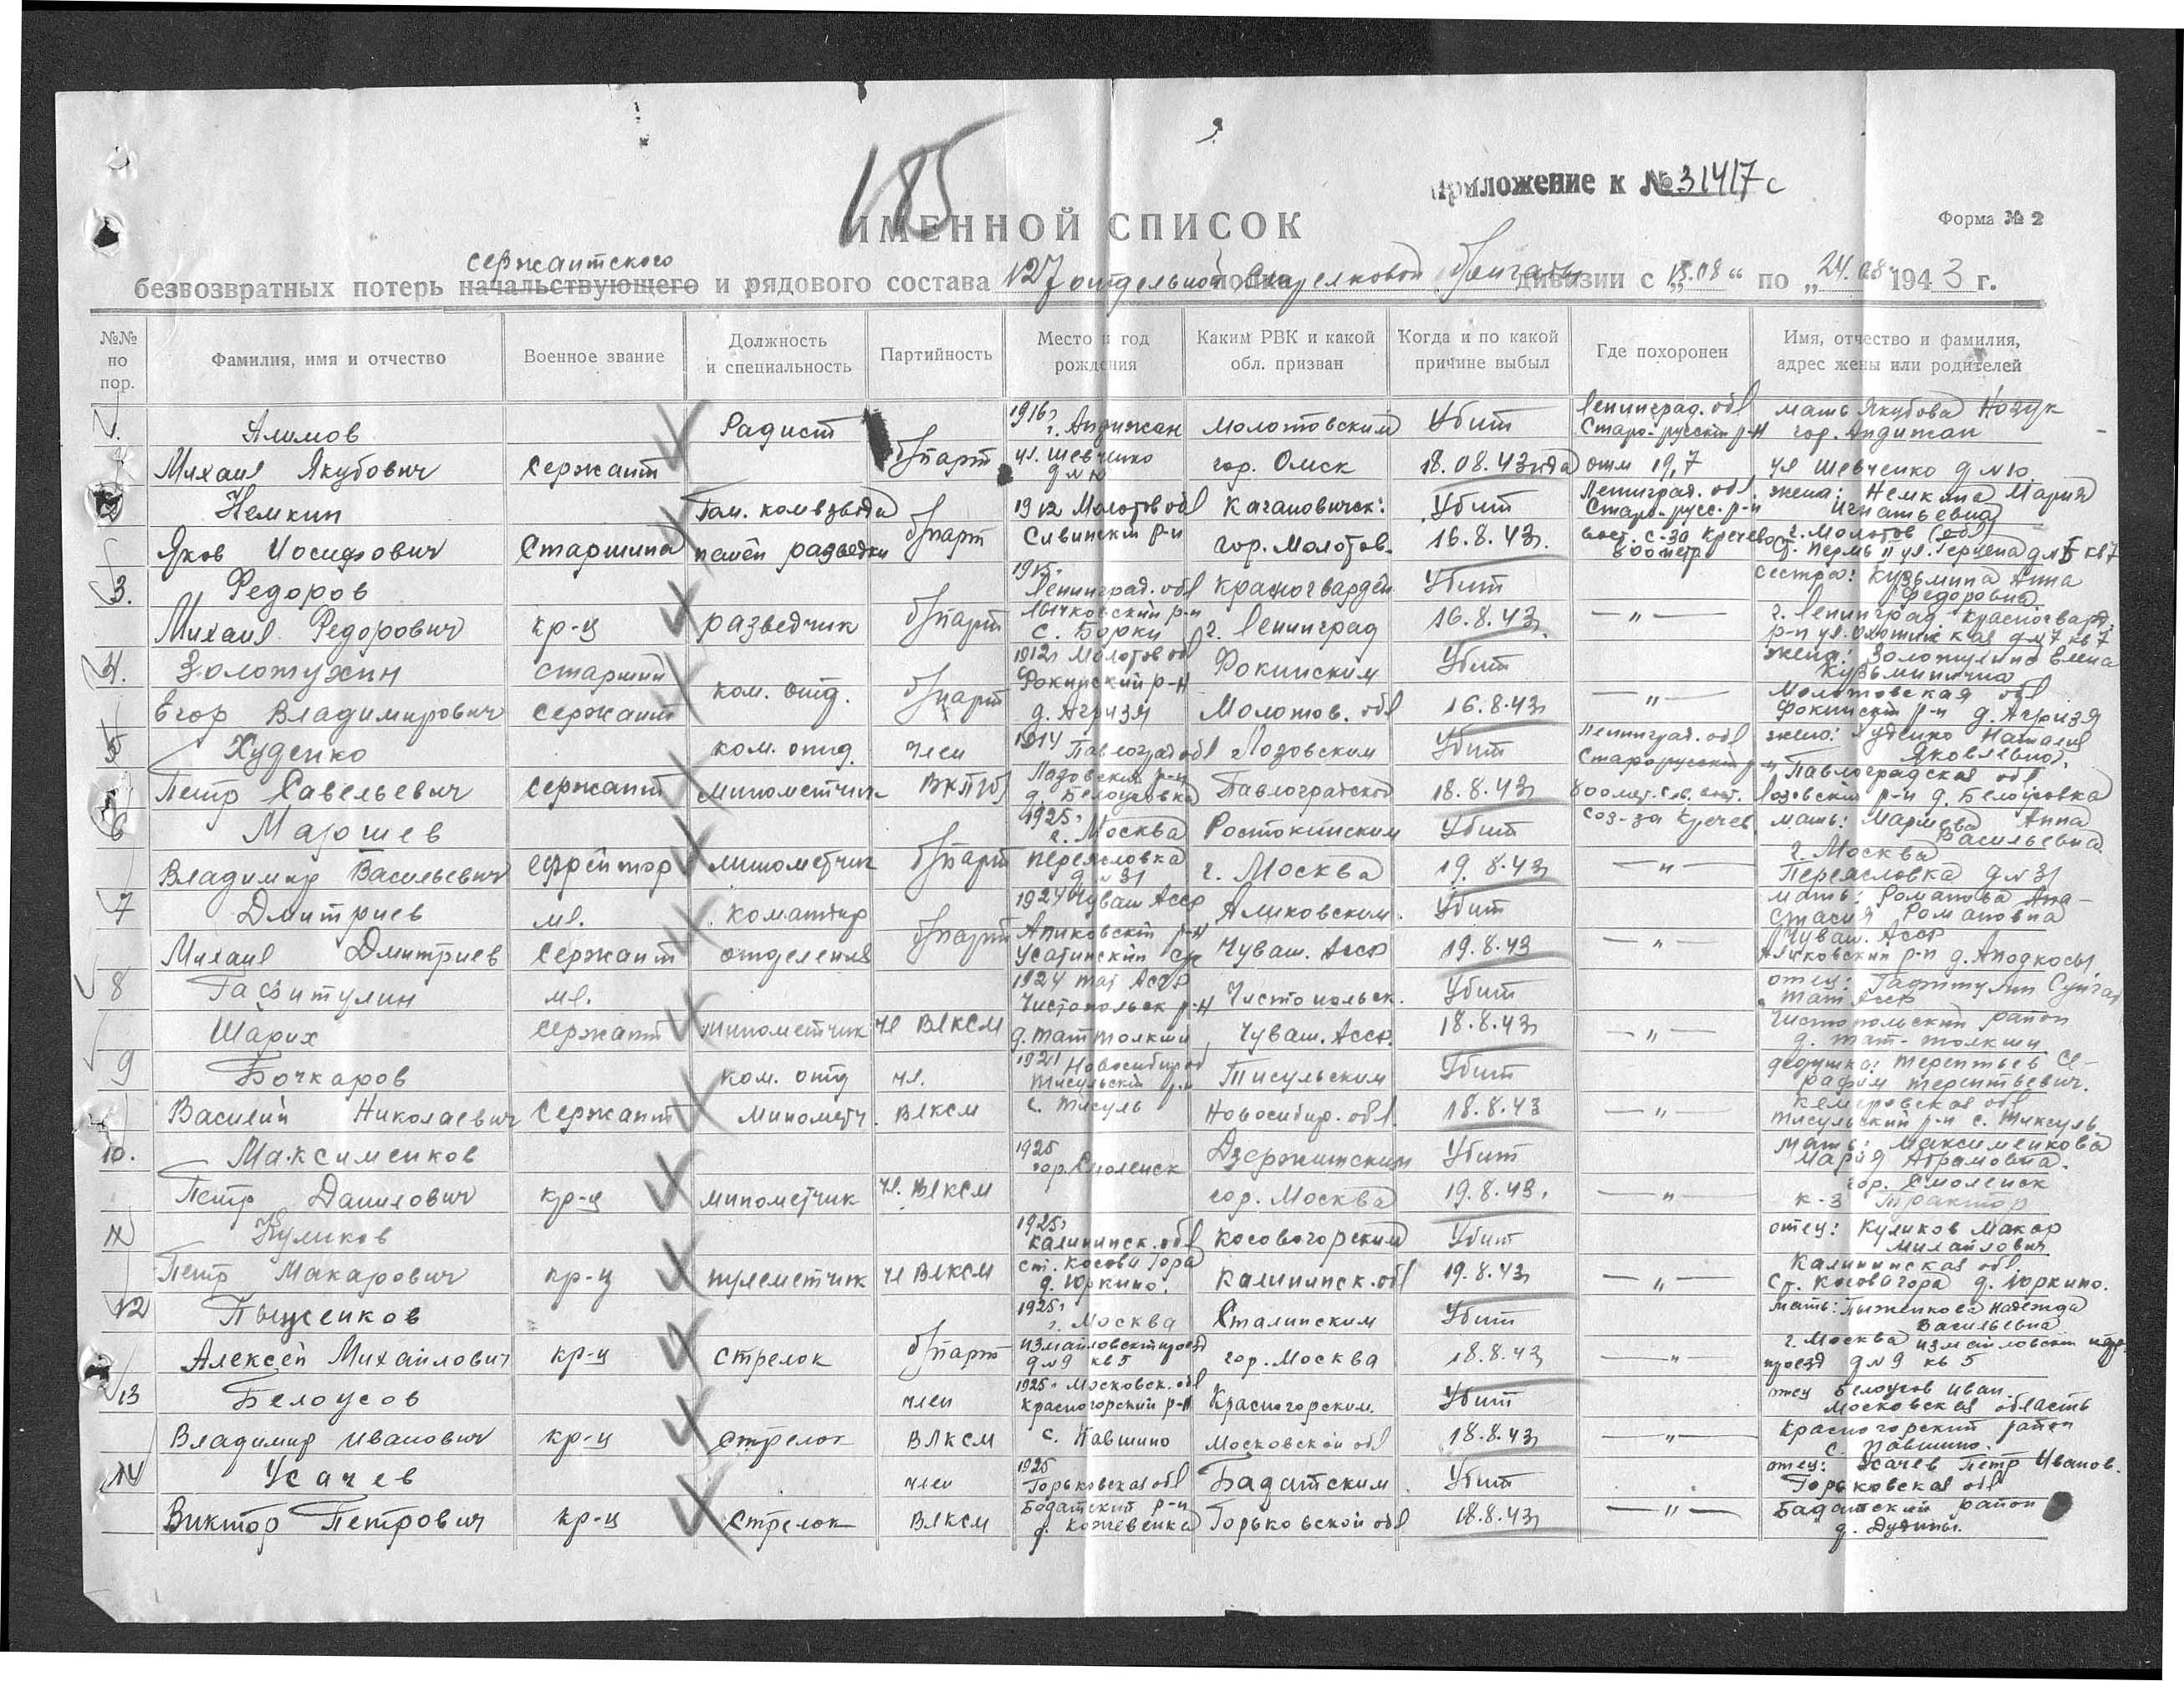 185
Приложение к № 31417с
ИМЕННОЙ СПИСОК
Форма № 2
сержантского
безвозвратных потерь начальствующего и рядового состава 127 отдельной стрелковой бригады дивизии с „18.08“ по „24.08“ 1943 г.
№№ по пор. Фамилия, имя и отчество Военное звание Должность и специальность Партийность Место и год рождения Каким РВК и какой обл. призван Когда и по какой причине выбыл Где похоронен Имя, отчество и фамилия, адрес жены или родителей
1. Алимов Радист 1916 г. Андижан Молотовским Убит Ленинград. обл Старо-русский р-н мать Якубова гор. Андижан
Михаил Якубович Сержант б/парт ул. Шевченко д №10 гор. Омск 18.08.43 года отм 19,7 ул Шевченко д №10
2 Немкин Пом. ком взвода 1912 Молотов обл Кагановичск: Убит Ленинград. обл. Старо-русс. р-н жена: Немкина Мария Игнатьевна
Яков Иосифович Старшина пешей разведки б/парт Сивинский р-н гор. Молотов. 16.8.43г. вост. с-за Кречево 800 метр г. Молотов (обл) ст. Пермь II ул. Герцена д №5 кв 7
3. Федоров 1915г. Ленинград. обл Красногвардей Убит сестра: Кузьмина Анна Федоровна
Михаил Федорович кр-ц разведчик б/парт Лычковский р-н с. Борки г. Ленинград 16.8.43г. — " — г. Ленинград Красногвард. р-н ул. Охотинская д №7 кв 7
4. Золотухин старший ком. отд. 1912г Молотов обл Фокинским Убит жена: Золотухина Елена Кузьминична
Егор Владимирович сержант б/парт Фокинский р-н д. Агризя Молотов. обл 16.8.43г — " — Молотовская обл Фокинский р-н д. Агризя
5 Худенко ком. отд. член 1914 Павлоград обл Лозовским Убит Ленинград. обл Старорусский р-н жена: Худенко Наталия Яковлевна.
Петр Савельевич Сержант Минометчик ВКП(б) Лазовский р-н д. Белоусовка Павлоградской 18.8.43г 800 мет. с.в. вост. соз-за Кречев Павлоградская обл Лозовский р-н д. Белоусовка
6 Маршев 1925г г. Москва Ростокинским Убит мать: Маршева Анна Васильевна
Владимир Васильевич ефрейтор минометчик б/парт Переясловка д №31 г. Москва 19.8.43г — " — г. Москва Переясловка д №31
7 Дмитриев мл. Командир 1924 Чуваш Асср Аликовским. Убит мать: Романова Ана-стасия Романовна
Михаил Дмитриев Сержант отделения б/парт Аликовский р-н Усатинский с/с Чуваш. Асср 19.8.43 — " — Чуваш. Асср Аликовский р-н д. Аподкосы
8 Гафитулин мл. 1924 тат Асср Чистопольск. Убит отец: Гафитулин
Шарих Сержант минометчик чл ВЛКСМ Чистопольск р-н д. Таттолкиш Чуваш. Асср. 18.8.43г — " — Тат Асср Чистопольский район д. Тат-толкиш
9 Бочкаров ком. отд чл. 1921 Новосибир об Тисульским Убит дедушка: Терентьев Се-рафим Терентьевич.
Василий Николаевич Сержант минометч. ВЛКСМ Тисульский р-н с. Тисуль Новосибир. обл. 18.8.43 — " — Кемеровская обл Тисульский р-н с. Тиксуль.
10. Максименков 1925 гор. Смоленск Дзержинским Убит мать: Максименкова Мария Абрамовна.
Петр Данилович кр-ц минометчик чл. ВЛКСМ гор. Москва 19.8.43. — " — гор. Смоленск к-з Трактор
11 Куликов 1925г Калининск. обл Косовогорским Убит отец: Куликов Макар Михайлович
Петр Макарович кр-ц пулеметчик чл ВЛКСМ ст. Косова Гора д. Юркино. Калининск. обл 19.8.43г — " — Калининская обл. Ст. Косова гора д. Юркино.
12 Пыженков 1925г г. Москва Сталинским Убит мать: Пыженкова Надежда Васильевна
Алексей Михайлович кр-ц стрелок б/парт Измайловский проезд д №9 кв 5 гор. Москва 18.8.43 — " — г. Москва Измайловский проезд д №9 кв 5
13 Белоусов член 1925г Московск. обл Красногорским. Убит отец Белоусов Иван. Московская область
Владимир Иванович кр-ц стрелок ВЛКСМ Красногорский р-н с. Павшино Московской обл 18.8.43г — " — Красногорский район с. Павшино.
14 Усачев член 1925 Горьковская обл Бадатским Убит отец: Усачев Петр Иванов. Горьковская обл
Виктор Петрович кр-ц Стрелок ВЛКСМ Бодатский р-н д. Кожевенка Горьковской обл 18.8.43г — " — Бадатский район д. Дудины.